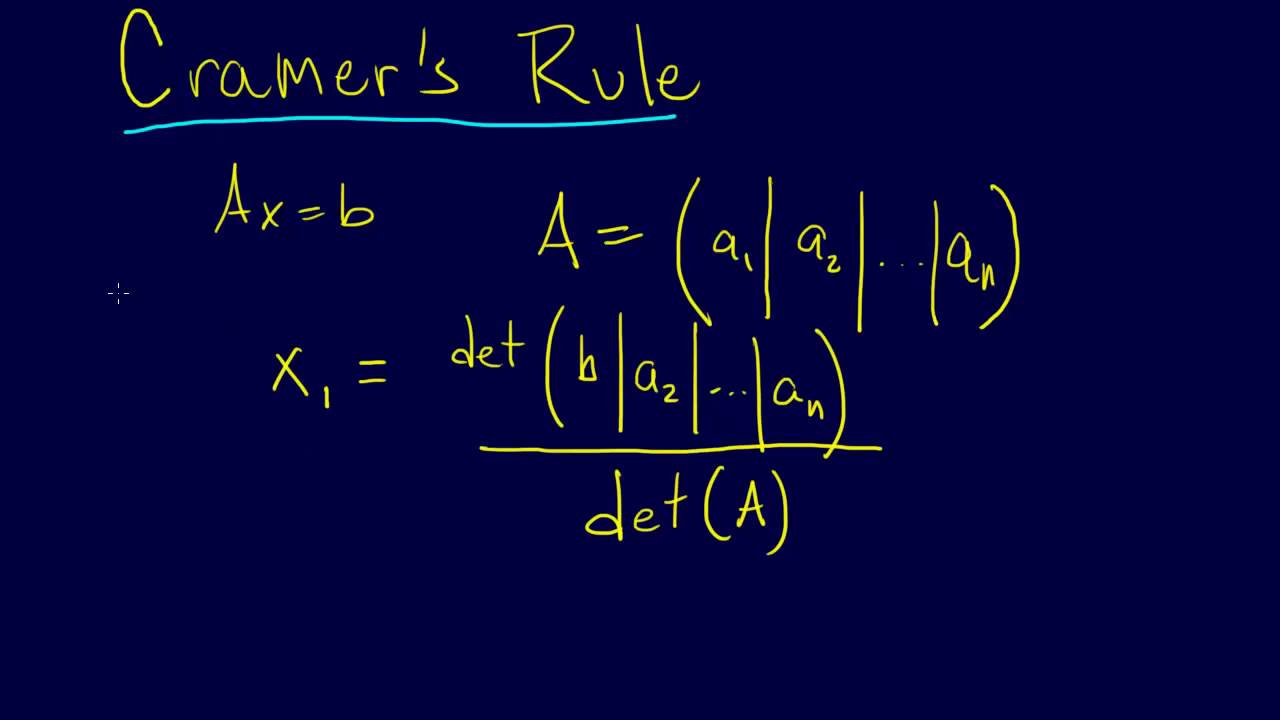 Cramer's Rule
Ax = b
A = (a₁ | a₂ | ... | aₙ)
x₁ = det (b | a₂ | ... | aₙ)
det (A)